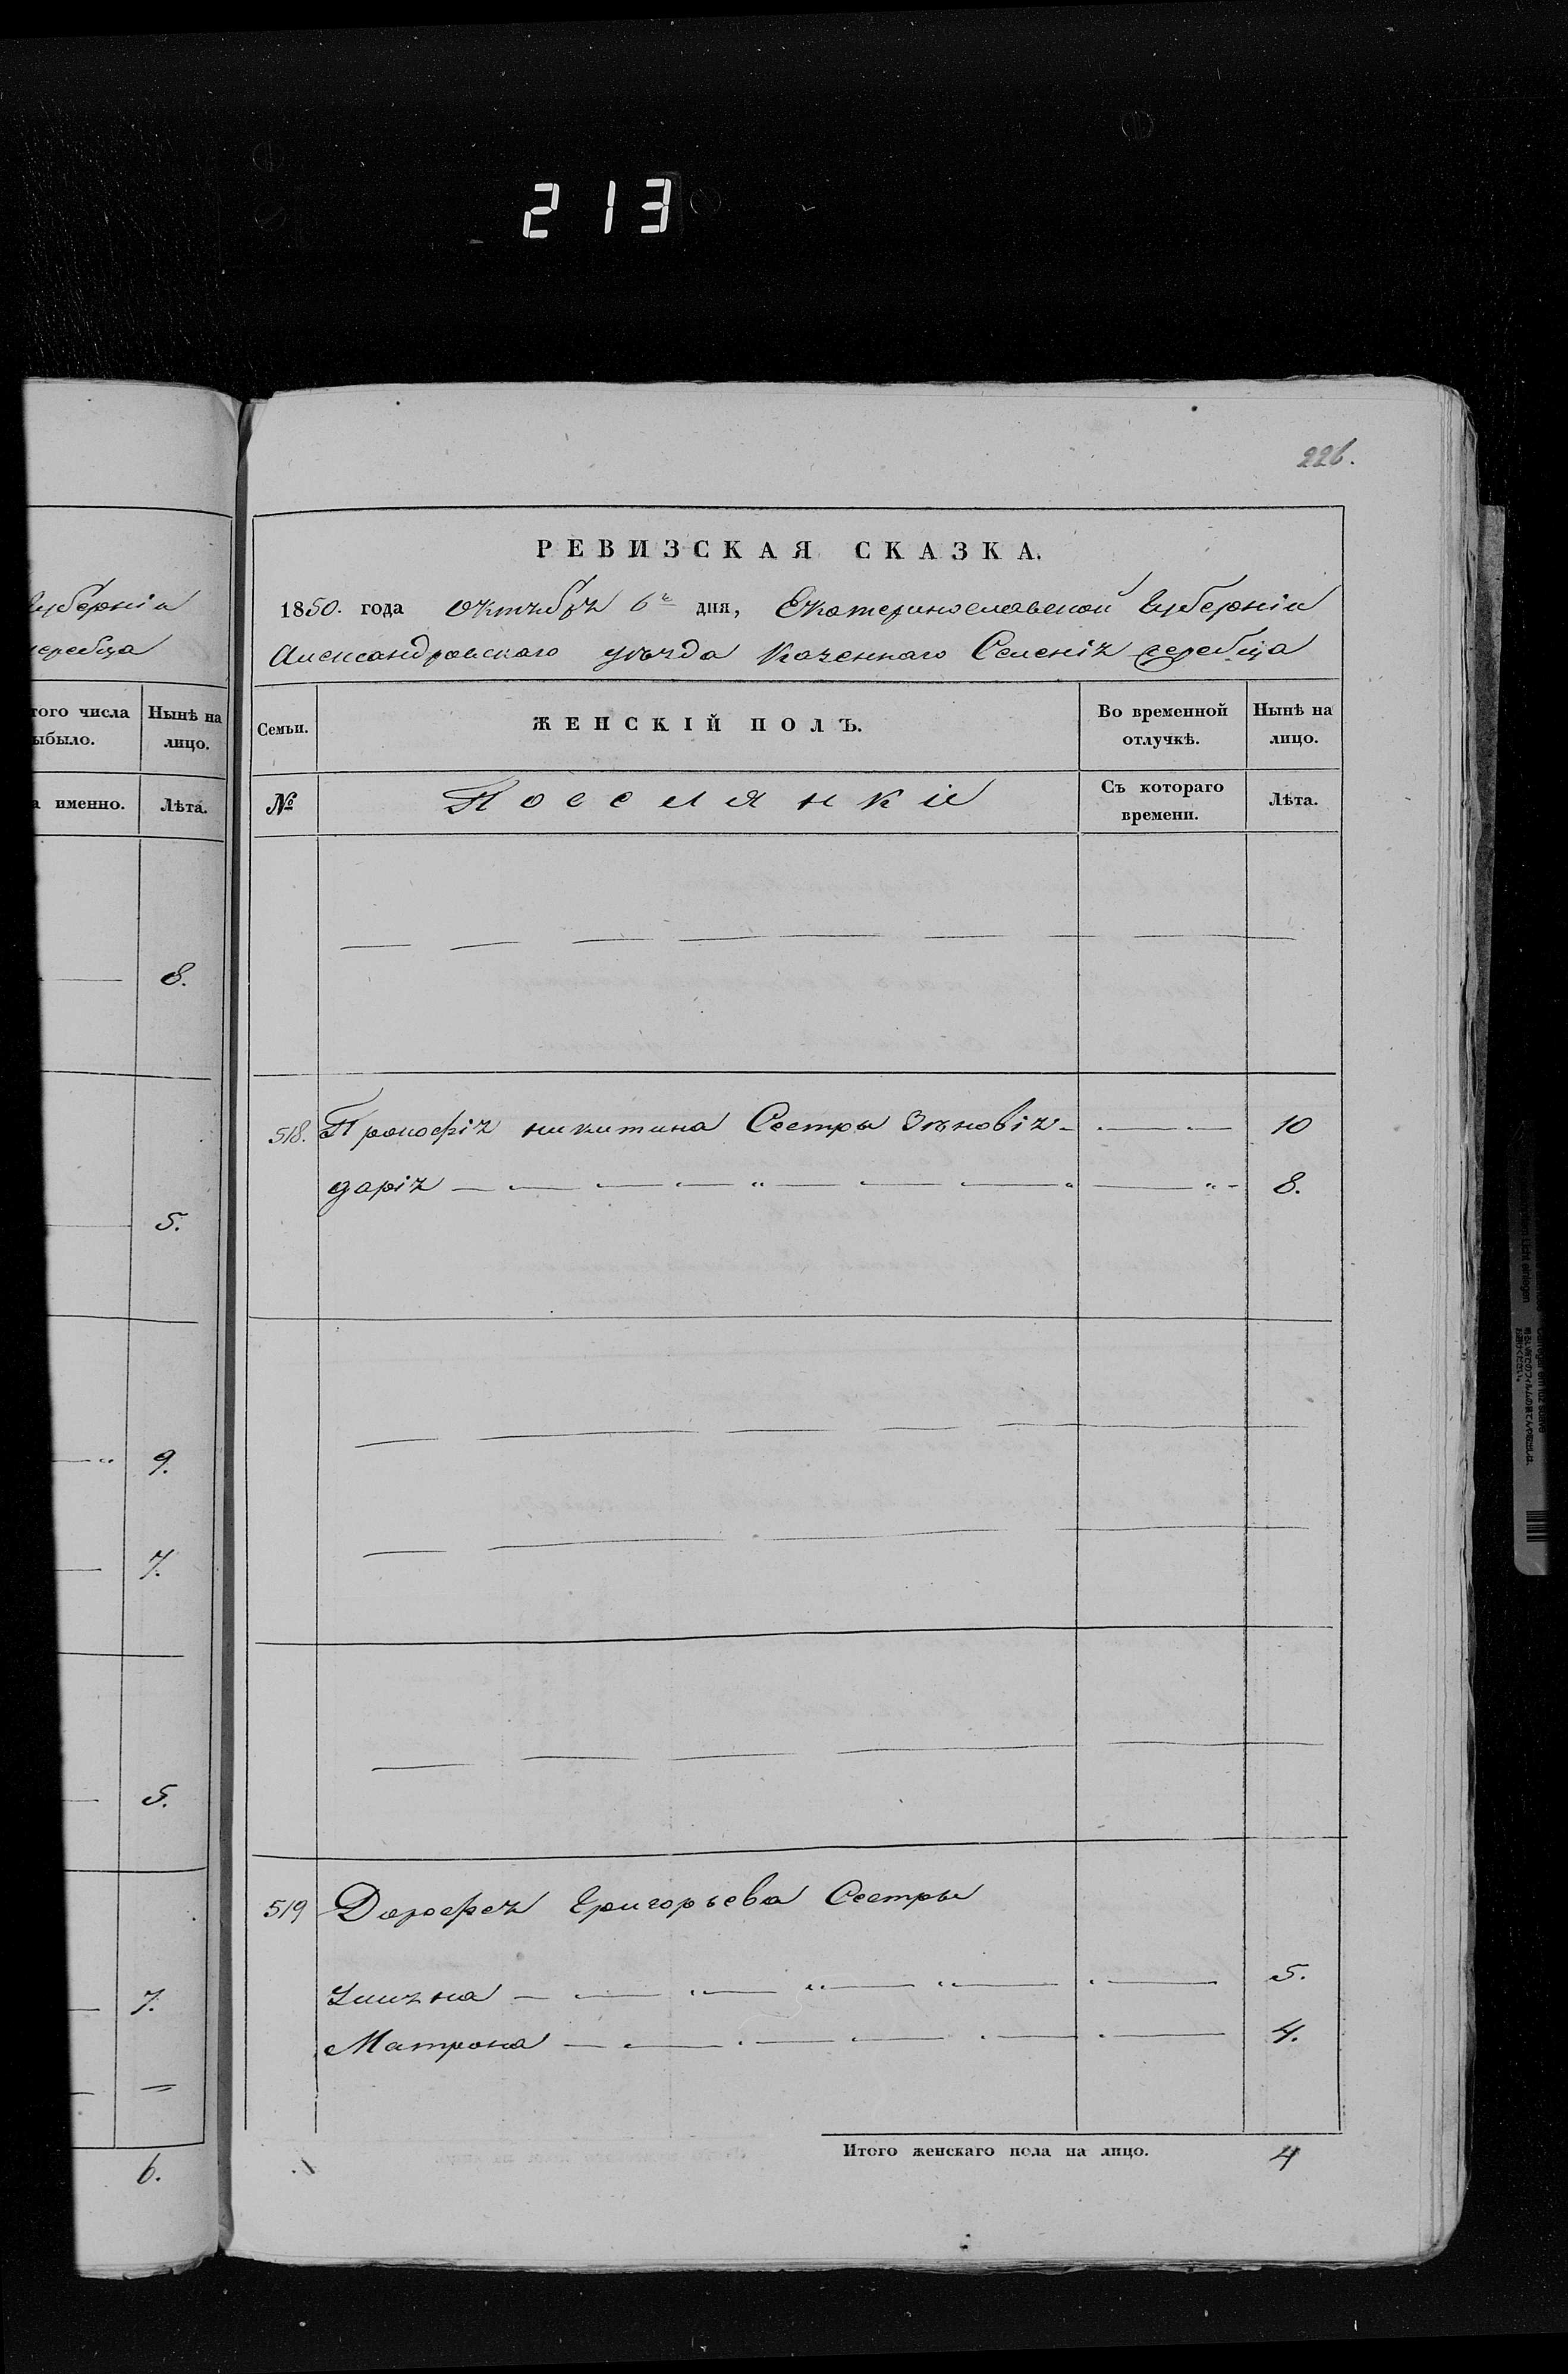 213
226.
губерніи
жеребца
того числа
ыбыло.
Нынѣ на
лицо.
а именно.
Лѣта.
8.
5.
9.
7.
5.
7.
6.
РЕВИЗСКАЯ СКАЗКА.
1850. года октября 6е дня, Екатеринославской губерніи
Александровскаго уѣзда казеннаго Селенія жеребца
Семьи.
ЖЕНСКІЙ ПОЛЪ.
Во временной
отлучкѣ.
Нынѣ на
лицо.
№
Посселянкіе
Съ котораго
времени.
Лѣта.
518. Прокофія никитина Сестры Зѣновія 10
дарія 8.
519 Дорофея Григорьева Сестры
5.
Матрона 4.
Итого женскаго пола на лицо. 4